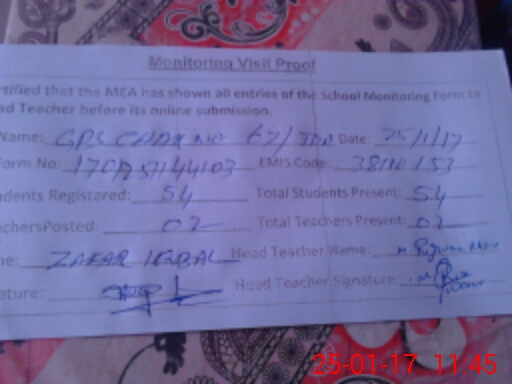 Monitoring Visit Proof
rtified that the MEA has shown all entries of the School Monitoring Form to
ad Teacher before its online submission.
Name: GPS CHAK NO 67/ Date: 25/1/17
Form No: EMIS Code:
dents Registered: 54 Total Students Present: 54
chersPosted: 02 Total Teachers Present: 02
me: ZAFAR IQBAL Head Teacher Name: M Rizwan
ature: Head Teacher Signature:
25-01-17 11:45